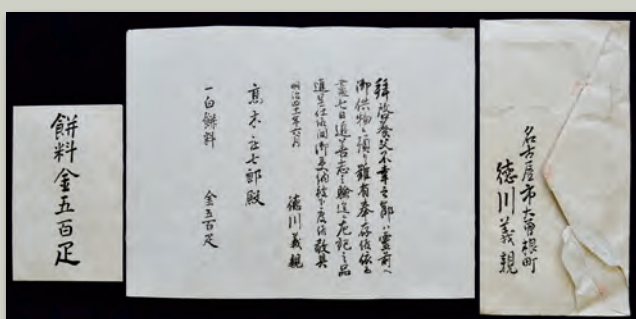 名古屋市大曽根町
徳川義親
拝啓養父不幸之節ハ霊前へ
御供物頂難有奉存候依
七日追善志之験迄左記之品
進呈仕候間御受納被下度候敬具
明治四十一年六月
徳川義親
七郎殿
一白餅料 金五百疋
餅料金五百疋